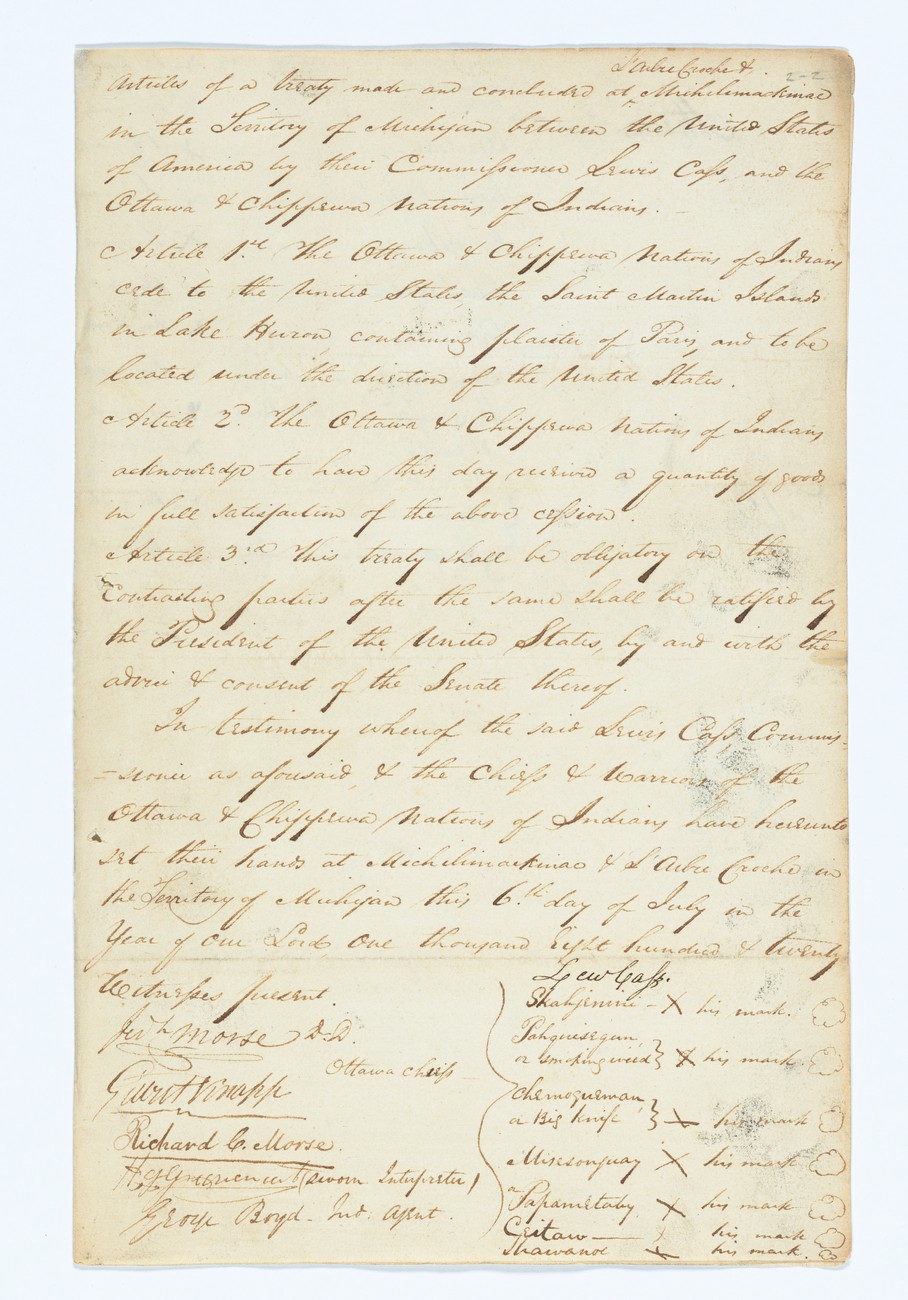 L'Arbre Croche &
2-2
Articles of a treaty made and concluded at Michilimackinac
in the Territory of Michigan between the United States
of America by their Commissioner Lewis Cass, and the
Ottawa & Chippewa Nations of Indians. –
Article 1.st The Ottawa & Chippewa Nations of Indians
cede to the United States the Saint Martin Islands
in Lake Huron, containing plaister of Paris, and to be
located under the direction of the United States.
Article 2.d The Ottawa & Chippewa Nations of Indians
acknowledge to have this day received a quantity of goods
in full satisfaction of the above cession.
Article 3.d This treaty shall be obligatory on the
Contracting parties after the same shall be ratified by
the President of the United States, by and with the
advice & consent of the Senate thereof.
In testimony whereof the said Lewis Cass, Commis-
-sioner as aforesaid, & the Chiefs & Warriors of the
Ottawa & Chippewa Nations of Indians have hereunto
set their hands at Michilimackinac & L'Arbre Croche in
the Territory of Michigan this 6.th day of July in the
Year of Our Lord, One thousand Eight hundred & twenty
Lew Cass.
Witnesses present.
Jed.h Morse D.D.
Gilbert Knapp
Richard C. Morse.
(sworn Interpreter)
George Boyd. Ind. Agent.
Ottawa chiefs
Skahjenini – X his mark.
Pahquesegun,
or smoking weed } X his mark
Chemoqueman,
or Big Knife } X his mark
Misesonquay X his mark
Papametaby X his mark
Ceitaw — X his mark
Shawanoe X his mark.